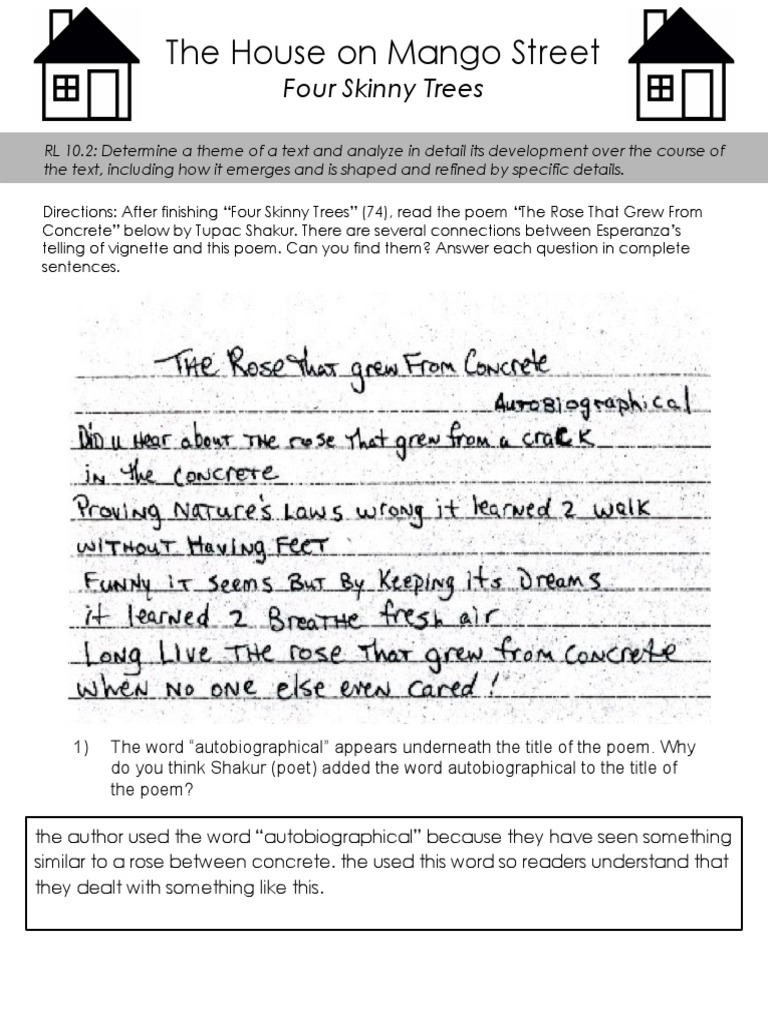 The House on Mango Street
Four Skinny Trees
RL 10.2: Determine a theme of a text and analyze in detail its development over the course of
the text, including how it emerges and is shaped and refined by specific details.
Directions: After finishing “Four Skinny Trees” (74), read the poem “The Rose That Grew From
Concrete” below by Tupac Shakur. There are several connections between Esperanza’s
telling of vignette and this poem. Can you find them? Answer each question in complete
sentences.
THE Rose That grew From Concrete
Autobiographical
Did u Hear about THE rose That grew from a crack
in the concrete
Proving Nature's Laws wrong it learned 2 walk
without Having Feet
Funny it seems But By Keeping its Dreams
it learned 2 Breathe fresh air
Long Live THE rose That grew from concrete
when no one else even cared!
1) The word “autobiographical” appears underneath the title of the poem. Why
do you think Shakur (poet) added the word autobiographical to the title of
the poem?
the author used the word “autobiographical” because they have seen something
similar to a rose between concrete. the used this word so readers understand that
they dealt with something like this.